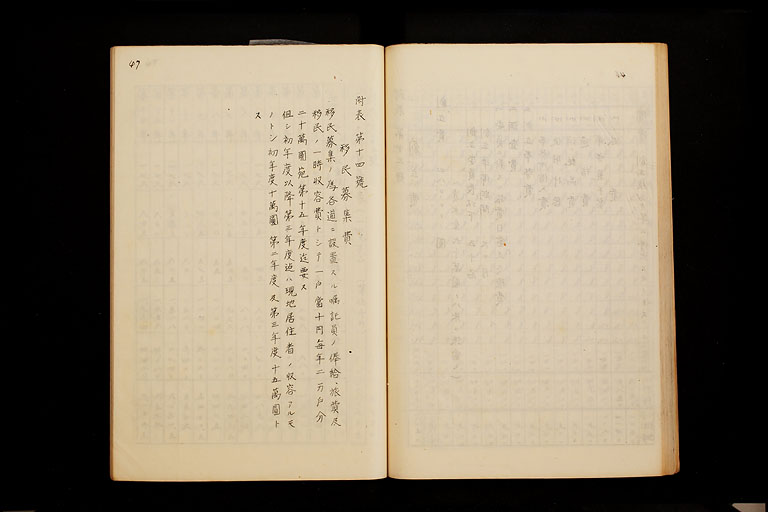 47
附表 第十四號
移民募集費
移民募集ノ爲各道ニ設置スル囑託員ノ俸給、旅費及
移民ノ一時收容費トシテ一戶當十円每年二万戶分
二十萬圓宛第十五年度迄要ス
但シ初年度以降第三年度迄ハ現地居住者ノ收容アルモ
ノトシ初年度十萬圓 第二年度及第三年度十五萬圓ト
ス